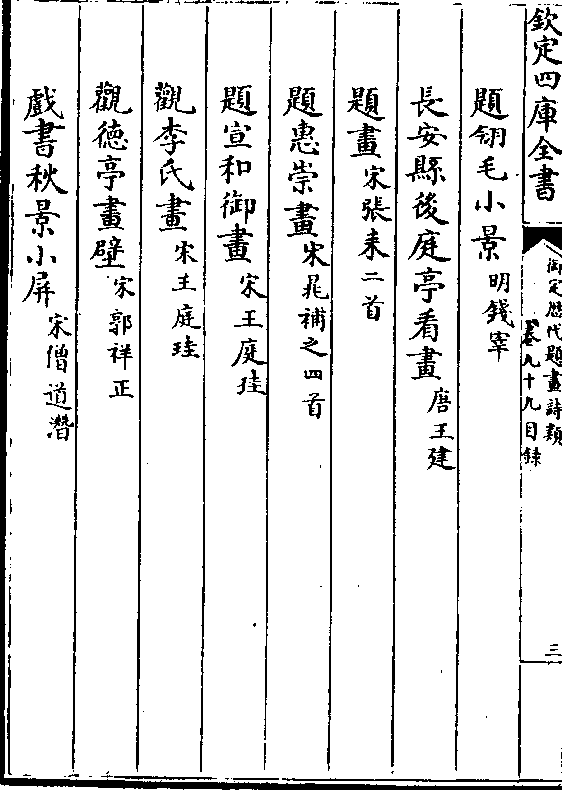 欽定四庫全書
御定歴代題畫詩類
卷九十九目録
三
題翎毛小景 明錢宰
長安縣後庭亭看畫 唐王建
題畫 宋張耒二首
題惠崇畫 宋晁補之四首
題宣和御畫 宋王庭珪
觀李氏畫 宋王庭珪
觀德亭畫壁 宋郭祥正
戲書秋景小屏 宋僧道潛